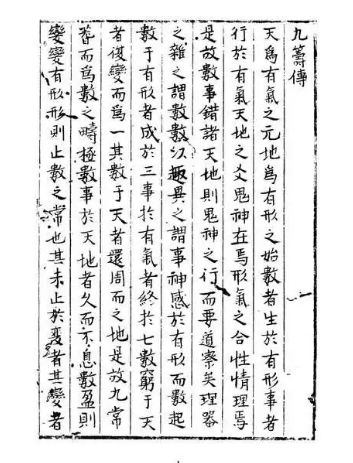 九籌傳
天爲有氣之元地爲有形之始數者生於有形事者
行於有氣天地之爻鬼神在焉形氣之合性情理焉
是故數事錯諸天地則鬼神之行而要道察矣理器
之雜之謂數數以趣異之謂事神感於有形而數起
數于有形者成於三事於有氣者終於七數窮于天
者復變而爲一其數于天者還周而之地是故九常
晷而爲數之疇極數事於天地者久而不息數盈則
變變有形形則止數之常也其未止於變者其變者